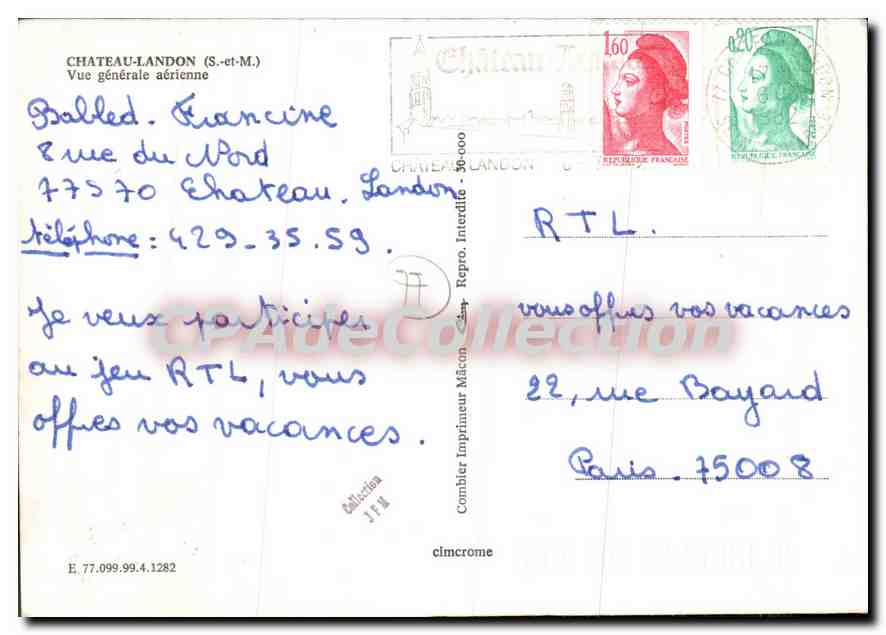 CHATEAU-LANDON (S.-et-M.)
Vue générale aérienne
Babled. Francine
8 rue du Nord
77570 Chateau. Landon
téléphone : 429.35.59.
Je veux participer
au jeu RTL, vous
offres vos vacances.
77
Collection
J F M
E 77.099.99.4.1282
Combier Imprimeur Mâcon
Repro. Interdite - 30-000
cimcrome
Château-
CHATEAU-LANDON
1,60
POSTES
REPUBLIQUE FRANÇAISE
0,20
REPUBLIQUE FRANÇAISE
RTL.
vous offres vos vacances
22, rue Bayard
Paris. 75008
CPAdeCollection